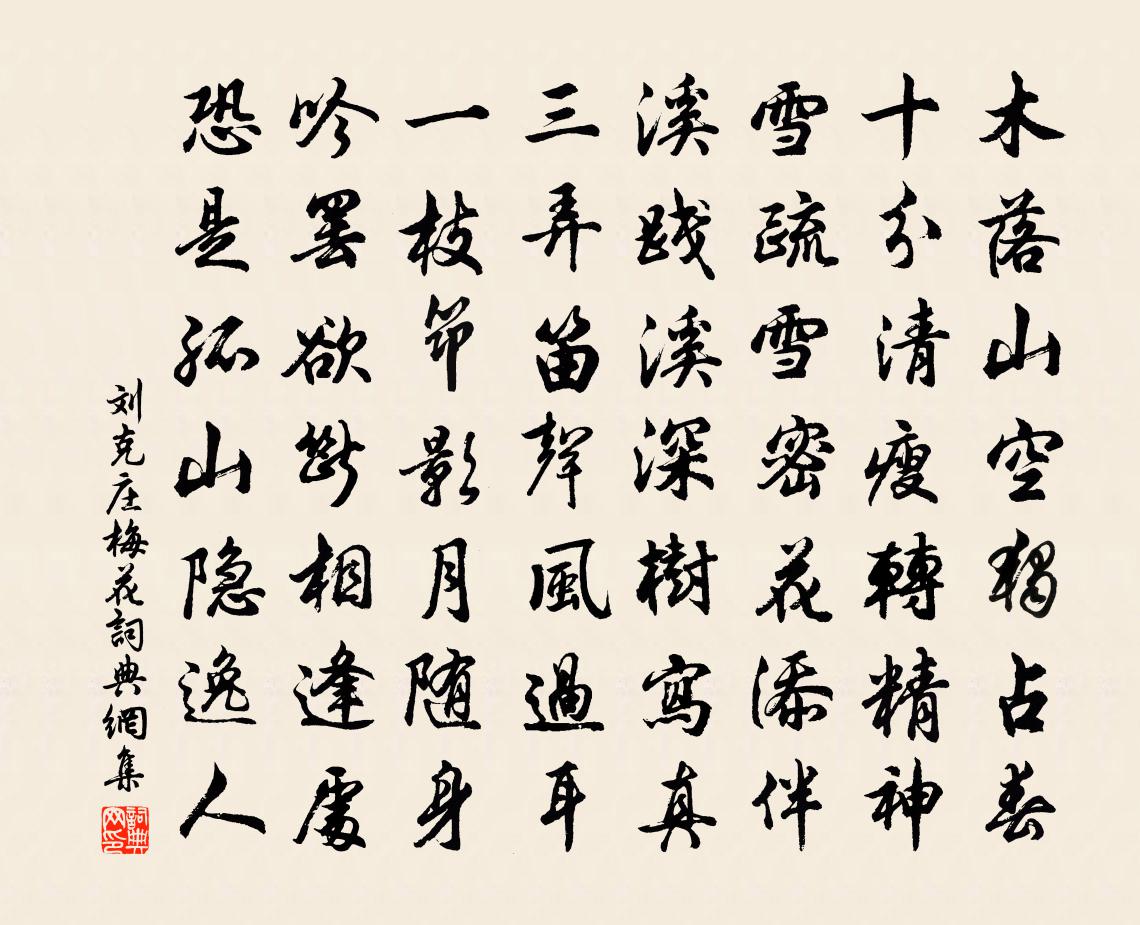 木落山空獨占春
十分清瘦轉精神
雪疏雪密花添伴
溪淺溪深樹寫真
三弄笛聲風過耳
一枝筇影月随身
吟罢欲断相逢處
恐是孤山隐逸人
刘克庄梅花詞典網集
詞典
网印